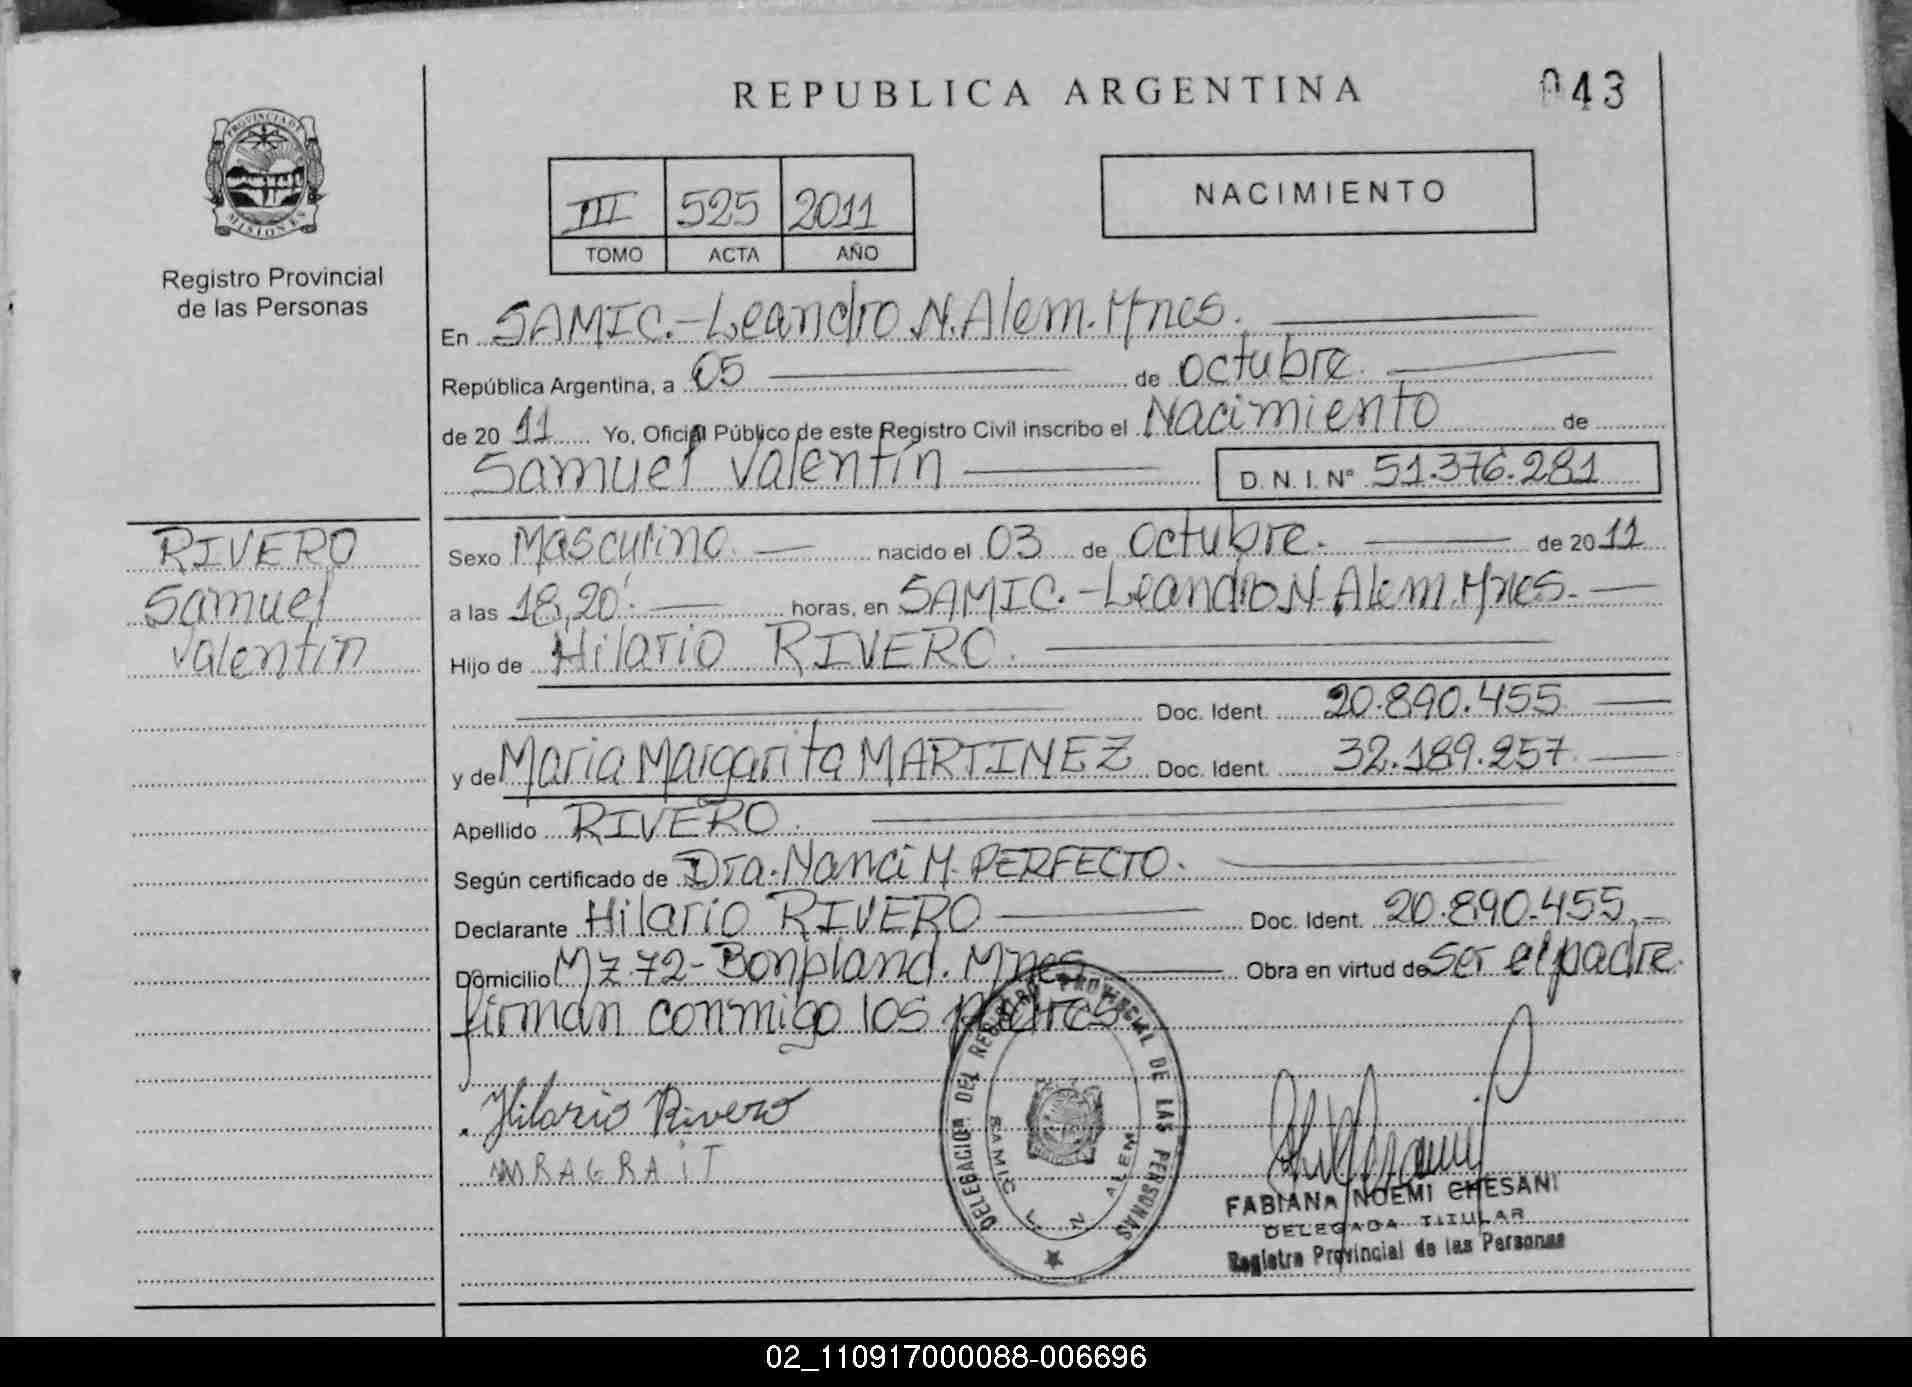 REPUBLICA ARGENTINA
043
PROVINCIA DE MISIONES
Registro Provincial
de las Personas
III 525 2011
TOMO ACTA AÑO
NACIMIENTO
En SAMIC.-Leandro N. Alem. Mnes.
República Argentina, a 05 de octubre.
de 20 11 Yo, Oficial Público de este Registro Civil inscribo el Nacimiento de
Samuel Valentín D. N. I. Nº 51.376.281
RIVERO
Samuel
Valentín
Sexo Masculino. nacido el 03 de Octubre. de 20 11
a las 18,20'. horas, en SAMIC.-Leandro N. Alem. Mnes.
Hijo de Hilario RIVERO.
Doc. Ident. 20.890.455
y de Maria Margarita MARTINEZ Doc. Ident. 32.189.257
Apellido RIVERO.
Según certificado de Dra. Nanci M. PERFECTO.
Declarante Hilario RIVERO Doc. Ident. 20.890.455
Domicilio Mz.72-Bonpland. Mnes Obra en virtud de Ser el padre.
firman conmigo los padres
Hilario Rivero
MRAGRAiT
DELEGACION DEL REGISTRO PROVINCIAL DE LAS PERSONAS
SAMIC L. N. ALEM
FABIANA NOEMI CHESANI
DELEGADA TITULAR
Registro Provincial de las Personas
02_110917000088-006696